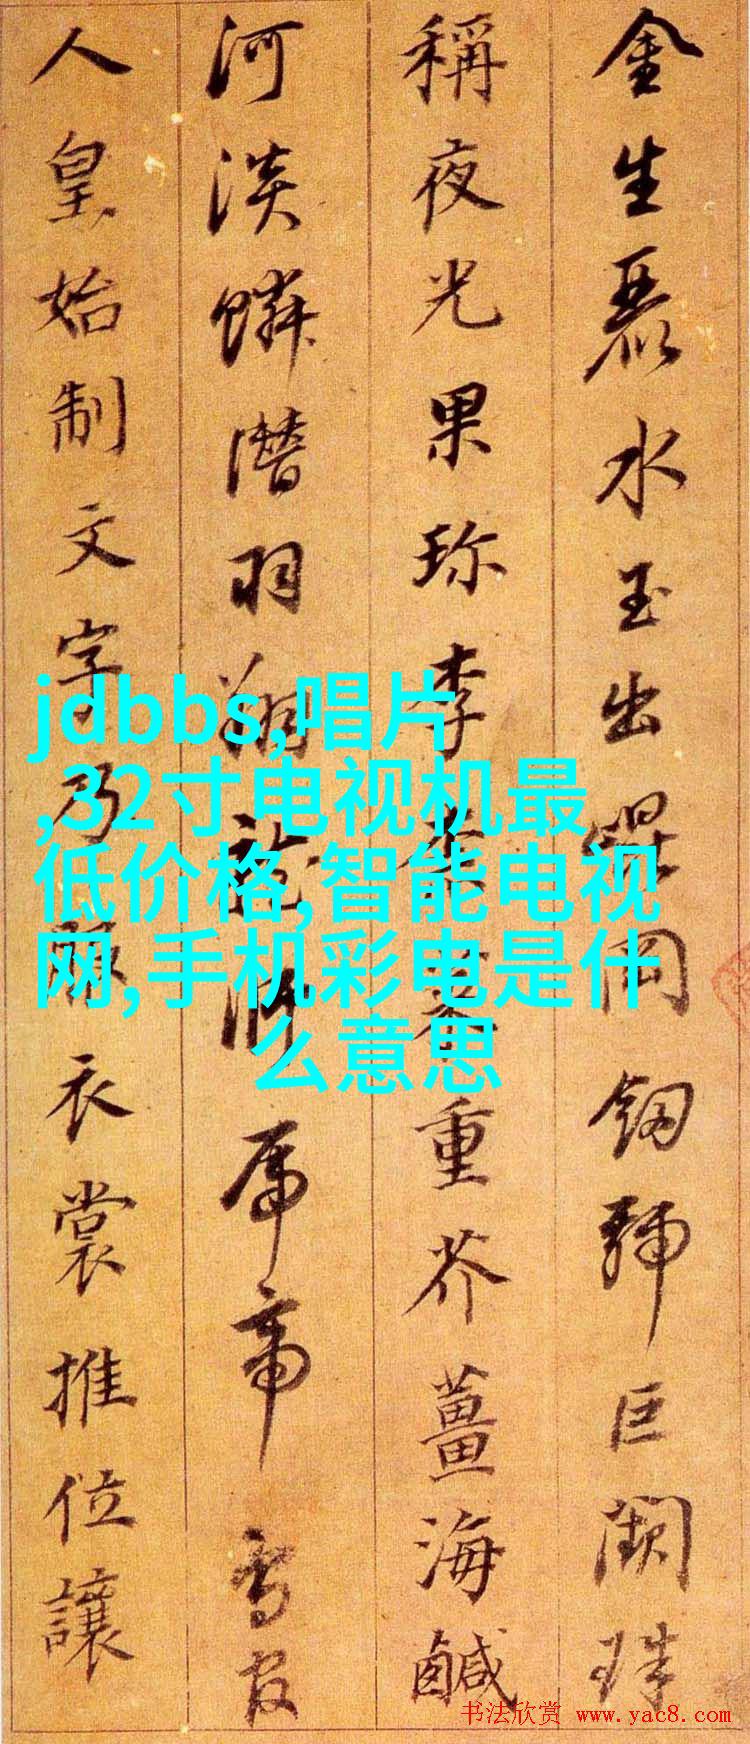 金生麗水玉出崑岡劔號巨闕珠
稱夜光果珎李柰菜重芥薑海鹹
河淡鱗潛羽翔龍師帝鳥官
人皇始制文字乃服衣裳推位讓
jdbbs,唱片
,32寸电视机最
低价格,智能电视
网,手机彩电是什
么意思
书法欣赏 www.yac8.com